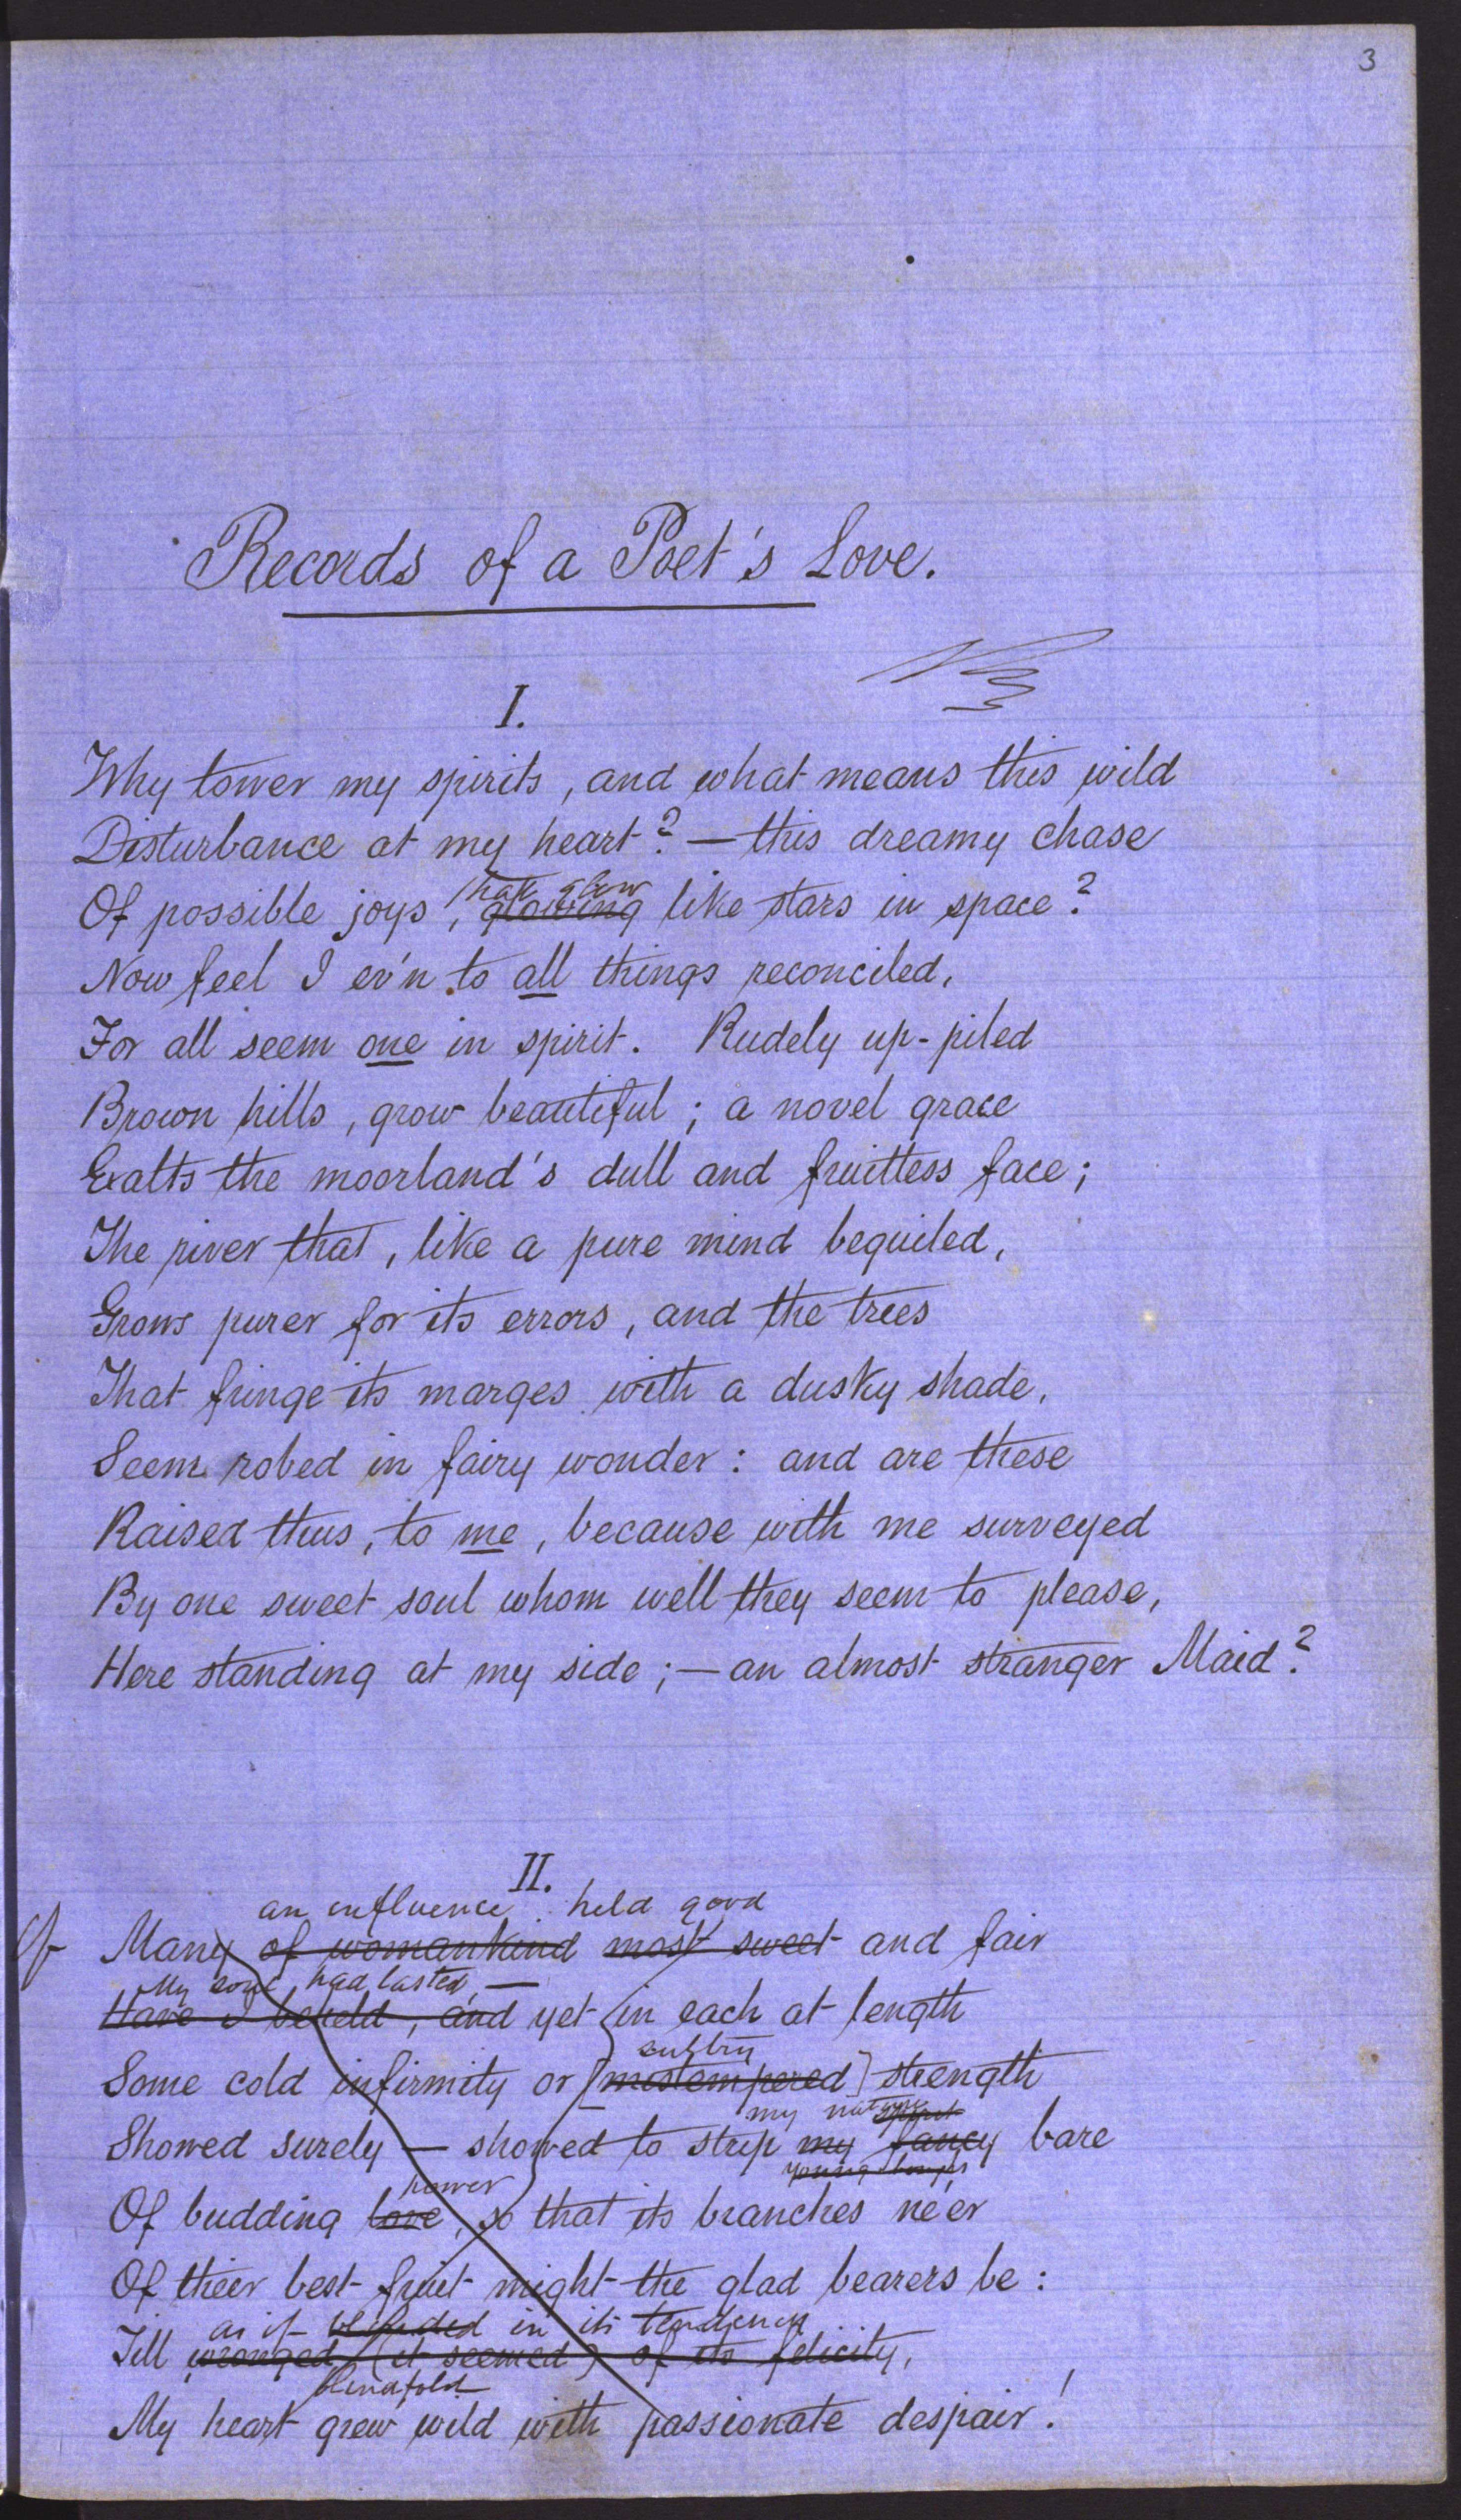 3
Records of a Poet's Love.
I.
Why tower my spirits, and what means this wild
Disturbance at my heart? — this dreamy chase
that glow
Of possible joys, glowing like stars in space?
Now feel I ev'n to all things reconciled,
For all seem one in spirit. Rudely up-piled
Brown hills, grow beautiful; a novel grace
Exalts the moorland's dull and fruitless face;
The river that, like a pure mind beguiled,
Grows purer for its errors, and the trees
That fringe its marges with a dusky shade,
Seem robed in fairy wonder: and are these
Raised thus, to me, because with me surveyed
By one sweet soul whom well they seem to please,
Here standing at my side; — an almost stranger Maid?
II.
an influence held good
Of Many of womankind most sweet and fair
My song had lasted, —
Have I beheld, and yet in each at length
sultry
Some cold infirmity or [mistempered] strength
my nature spirit
Showed surely — showed to strip my fancy bare
young boughs
power
Of budding love, so that its branches ne'er
Of their best fruit might the glad bearers be:
as if blinded in its tendency
Till wronged (it seemed) of its felicity,
blindfold
My heart grew wild with passionate despair!